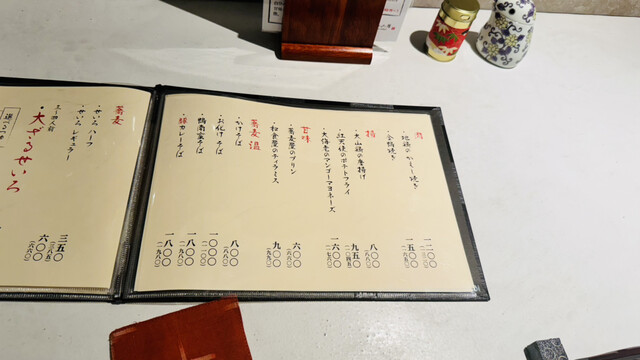 ・地鶏のカレー焼き 一二〇〇
・合鴨焼き 一五〇〇
揚
・大山鶏の唐揚げ 八〇〇
・紅天使のポテトフライ 九五〇
・大海老のマンゴーマヨネーズ 一六〇〇
甘味
・蕎麦屋のプリン 六〇〇
のティラミス 九〇〇
蕎麦 温
・かけそば 八〇〇
・お化けそば 一〇〇〇
・鴨南蛮そば 一八〇〇
カレーそば 一八〇〇
蕎麦
・せいろ ハーフ 三五〇
・せいろ レギュラー 六〇〇
三〜四人前
・大ざるせいろ
選べる